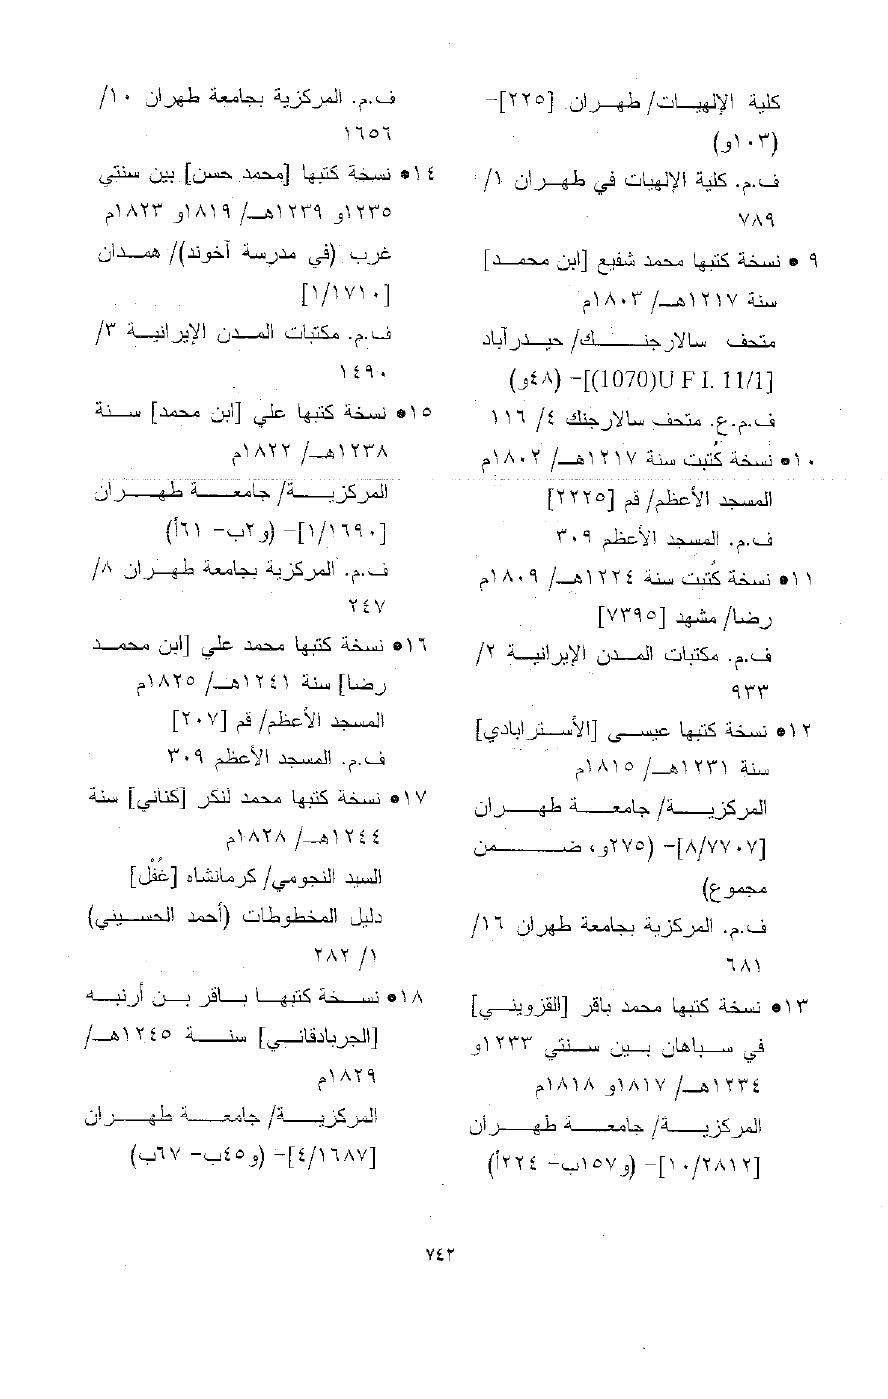 كلية الإلهيات/ طهران [٢٢٥]-
(١٠٣و)
ف.م. كلية الإلهيات في طهران ١/
٧٨٩
٩ • نسخة كتبها محمد شفيع [ابن محمد]
سنة ١٢١٧هـ/ ١٨٠٣م
متحف سالارجنك/ حيدرآباد
[U F I. 11/1(1070)]- (٤٨و)
ف.م.ع. متحف سالارجنك ٤/ ١١٦
١٠• نسخة كُتبت سنة ١٢١٧هـ/ ١٨٠٢م
المسجد الأعظم/ قم [٢٢٢٥]
ف.م. المسجد الأعظم ٣٠٩
١١• نسخة كُتبت سنة ١٢٢٤هـ/ ١٨٠٩م
رضا/ مشهد [٧٣٩٥]
ف.م. مكتبات المدن الإيرانية ٢/
٩٣٣
١٢• نسخة كتبها عيسى [الأسترابادي]
سنة ١٢٣١هـ/ ١٨١٥م
المركزية/ جامعة طهران
[٨/٧٧٠٧]- (٢٧٥و، ضمن
مجموع)
ف.م. المركزية بجامعة طهران ١٦/
٦٨١
١٣• نسخة كتبها محمد باقر [القزويني]
في سباهان بين سنتي ١٢٣٣و
١٢٣٤هـ/ ١٨١٧و ١٨١٨م
المركزية/ جامعة طهران
[١٠/٢٨١٢]- (و١٥٧ب- ٢٢٤أ)
ف.م. المركزية بجامعة طهران ١٠/
١٦٥٦
١٤• نسخة كتبها [محمد حسن] بين سنتي
١٢٣٥و ١٢٣٩هـ/ ١٨١٩و ١٨٢٣م
غرب (في مدرسة آخوند)/ همدان
[١/١٧١٠]
ف.م. مكتبات المدن الإيرانية ٣/
١٤٩٠
١٥• نسخة كتبها علي [ابن محمد] سنة
١٢٣٨هـ/ ١٨٢٢م
المركزية/ جامعة طهران
[١/١٦٩٠]- (و٢ب- ٦١أ)
ف.م. المركزية بجامعة طهران ٨/
٢٤٧
١٦• نسخة كتبها محمد علي [ابن محمد
رضا] سنة ١٢٤١هـ/ ١٨٢٥م
المسجد الأعظم/ قم [٢٠٧]
ف.م. المسجد الأعظم ٣٠٩
١٧• نسخة كتبها محمد لنكر [كناني] سنة
١٢٤٤هـ/ ١٨٢٨م
السيد النجومي/ كرمانشاه [غُفْل]
دليل المخطوطات (أحمد الحسيني)
١/ ٢٨٢
١٨• نسخة كتبها باقر بن أرنبه
[الجربادقاني] سنة ١٢٤٥هـ/
١٨٢٩م
المركزية/ جامعة طهران
[٤/١٦٨٧]- (و٤٥ب- ٦٧ب)
٧٤٢